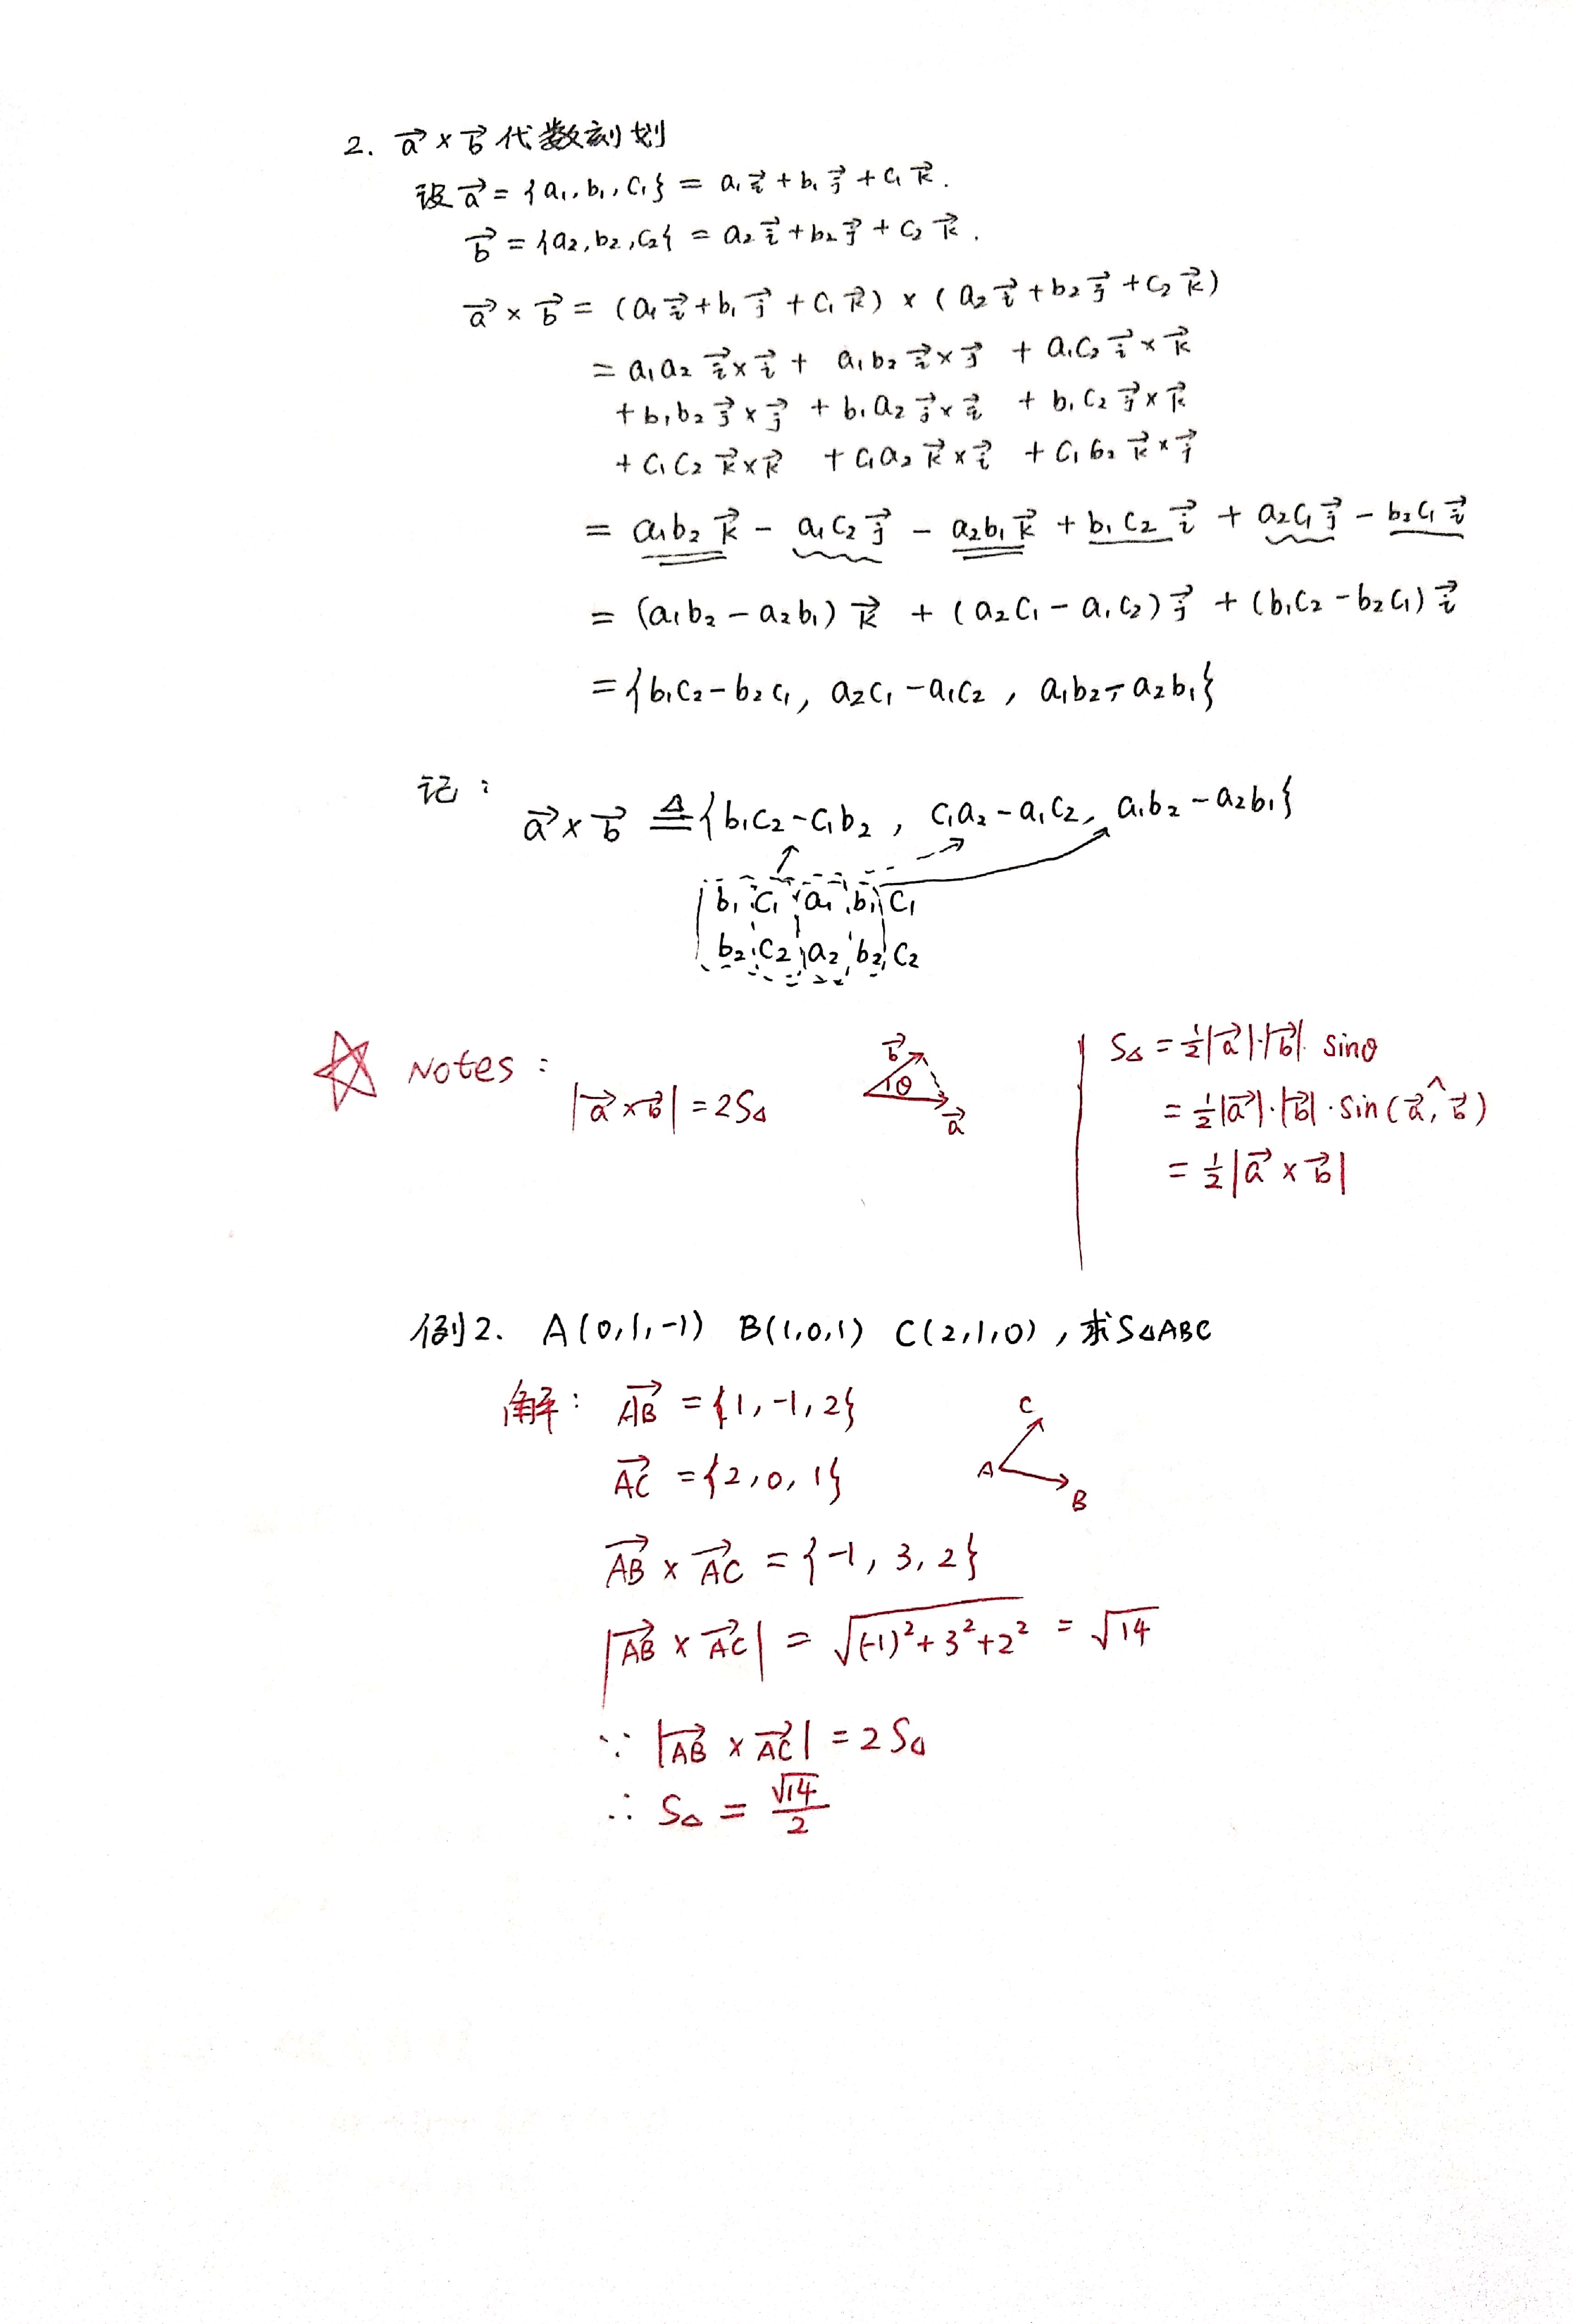 2. a⃗ × b⃗ 代数刻划
设 a⃗ = {a₁, b₁, c₁} = a₁i⃗ + b₁j⃗ + c₁k⃗.
b⃗ = {a₂, b₂, c₂} = a₂i⃗ + b₂j⃗ + c₂k⃗.
a⃗ × b⃗ = (a₁i⃗ + b₁j⃗ + c₁k⃗) × (a₂i⃗ + b₂j⃗ + c₂k⃗)
= a₁a₂ i⃗×i⃗ + a₁b₂ i⃗×j⃗ + a₁c₂ i⃗×k⃗
+ b₁b₂ j⃗×j⃗ + b₁a₂ j⃗×i⃗ + b₁c₂ j⃗×k⃗
+ c₁c₂ k⃗×k⃗ + c₁a₂ k⃗×i⃗ + c₁b₂ k⃗×j⃗
= a₁b₂k⃗ − a₁c₂j⃗ − a₂b₁k⃗ + b₁c₂i⃗ + a₂c₁j⃗ − b₂c₁i⃗
= (a₁b₂ − a₂b₁)k⃗ + (a₂c₁ − a₁c₂)j⃗ + (b₁c₂ − b₂c₁)i⃗
= {b₁c₂ − b₂c₁, a₂c₁ − a₁c₂, a₁b₂ − a₂b₁}
记:
a⃗ × b⃗ ≜ {b₁c₂ − c₁b₂, c₁a₂ − a₁c₂, a₁b₂ − a₂b₁}
b₁ c₁ a₁ b₁ c₁
b₂ c₂ a₂ b₂ c₂
Notes:
|a⃗ × b⃗| = 2S△
b⃗
θ
a⃗
S△ = ½|a⃗|·|b⃗|· sinθ
= ½|a⃗|·|b⃗|· sin(a⃗,^b⃗)
= ½|a⃗ × b⃗|
例2. A(0,1,-1) B(1,0,1) C(2,1,0), 求S△ABC
解: AB⃗ = {1, -1, 2}
AC⃗ = {2, 0, 1}
C
A
B
AB⃗ × AC⃗ = {-1, 3, 2}
|AB⃗ × AC⃗| = √((-1)²+3²+2²) = √14
∵ |AB⃗ × AC⃗| = 2S△
∴ S△ = √14/2